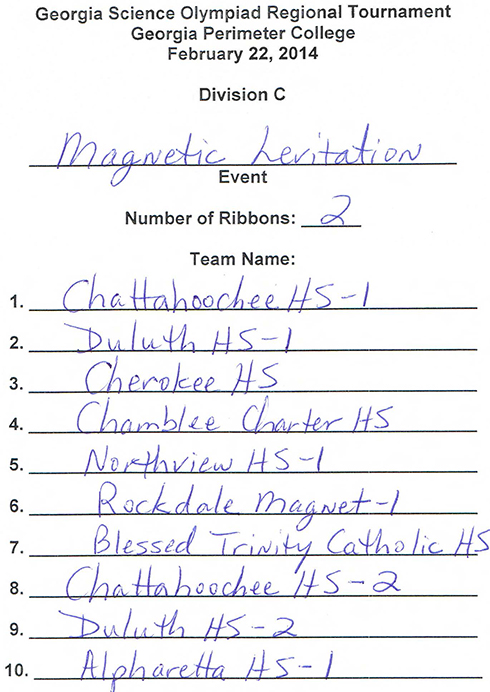 Georgia Science Olympiad Regional Tournament
Georgia Perimeter College
February 22, 2014
Division C
Magnetic Levitation
Event
Number of Ribbons: 2
Team Name:
1. Chattahoochee HS-1
2. Duluth HS-1
3. Cherokee HS
4. Chamblee Charter HS
5. Northview HS-1
6. Rockdale Magnet-1
7. Blessed Trinity Catholic HS
8. Chattahoochee HS-2
9. Duluth HS-2
10. Alpharetta HS-1